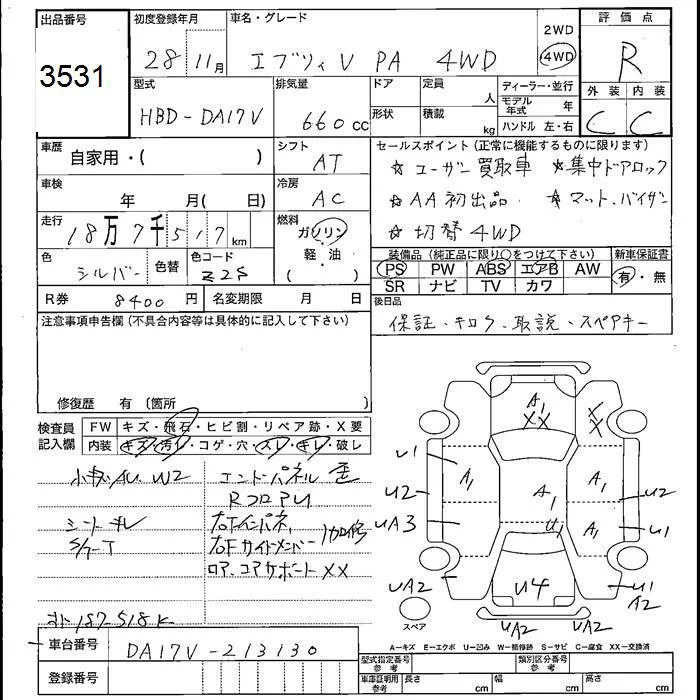 出品番号 初度登録年月 車名・グレード 2WD 評価点
3531 28 11月 エブリィV PA 4WD 4WD R
型式 排気量 ドア 定員 人 ディーラー・並行 外装 内装
HBD-DA17V 660cc 形状 積載 kg モデル年式 年 C C
ハンドル 左・右
車歴 自家用・( ) シフト AT セールスポイント (正常に機能するものに限ります)
☆ユーザー買取車 ☆集中ドアロック
車検 年 月( 日) 冷房 AC ☆AA初出品 ☆マット、バイザー
走行 18万7千517km 燃料 ガソリン・軽油 ( ) ☆切替4WD
色 シルバー 色替 色コード Z2S 装備品 (純正品に限り○をつけて下さい) 新車保証書
PS PW ABS エアB AW 有・無
SR ナビ TV カワ
R券 8400円 名変期限 月 日 後日品
注意事項申告欄 (不具合内容等は具体的に記入して下さい) 保証、キロク、取説、スペアキー
修復歴 有 (箇所 )
検査員記入欄 FW キズ・飛石・ヒビ割・リペア跡・X要
内装 キズ・汚れ・コゲ・穴・スレ・キレ・破レ
小キズ AU W2 エンドパネル歪
RコロアU
シートキレ 右Fインパネ 加修
右Fサイドメンバー
ロア、コアサポートXX
187518K
車台番号 DA17V-213130
登録番号
A1 XX XX
U1 A1 A1 A1 U2
U2 UA3 U1 A1 U1
UA2 U4 U1 A2
スペア UA2 UA2
A-キズ E-エクボ U-凹み W-補修跡 S-サビ C-腐食 XX-交換済
型式指定番号 参考 類別区分番号 参考
車庫証明用 参考 長さ cm 幅 cm 高さ cm